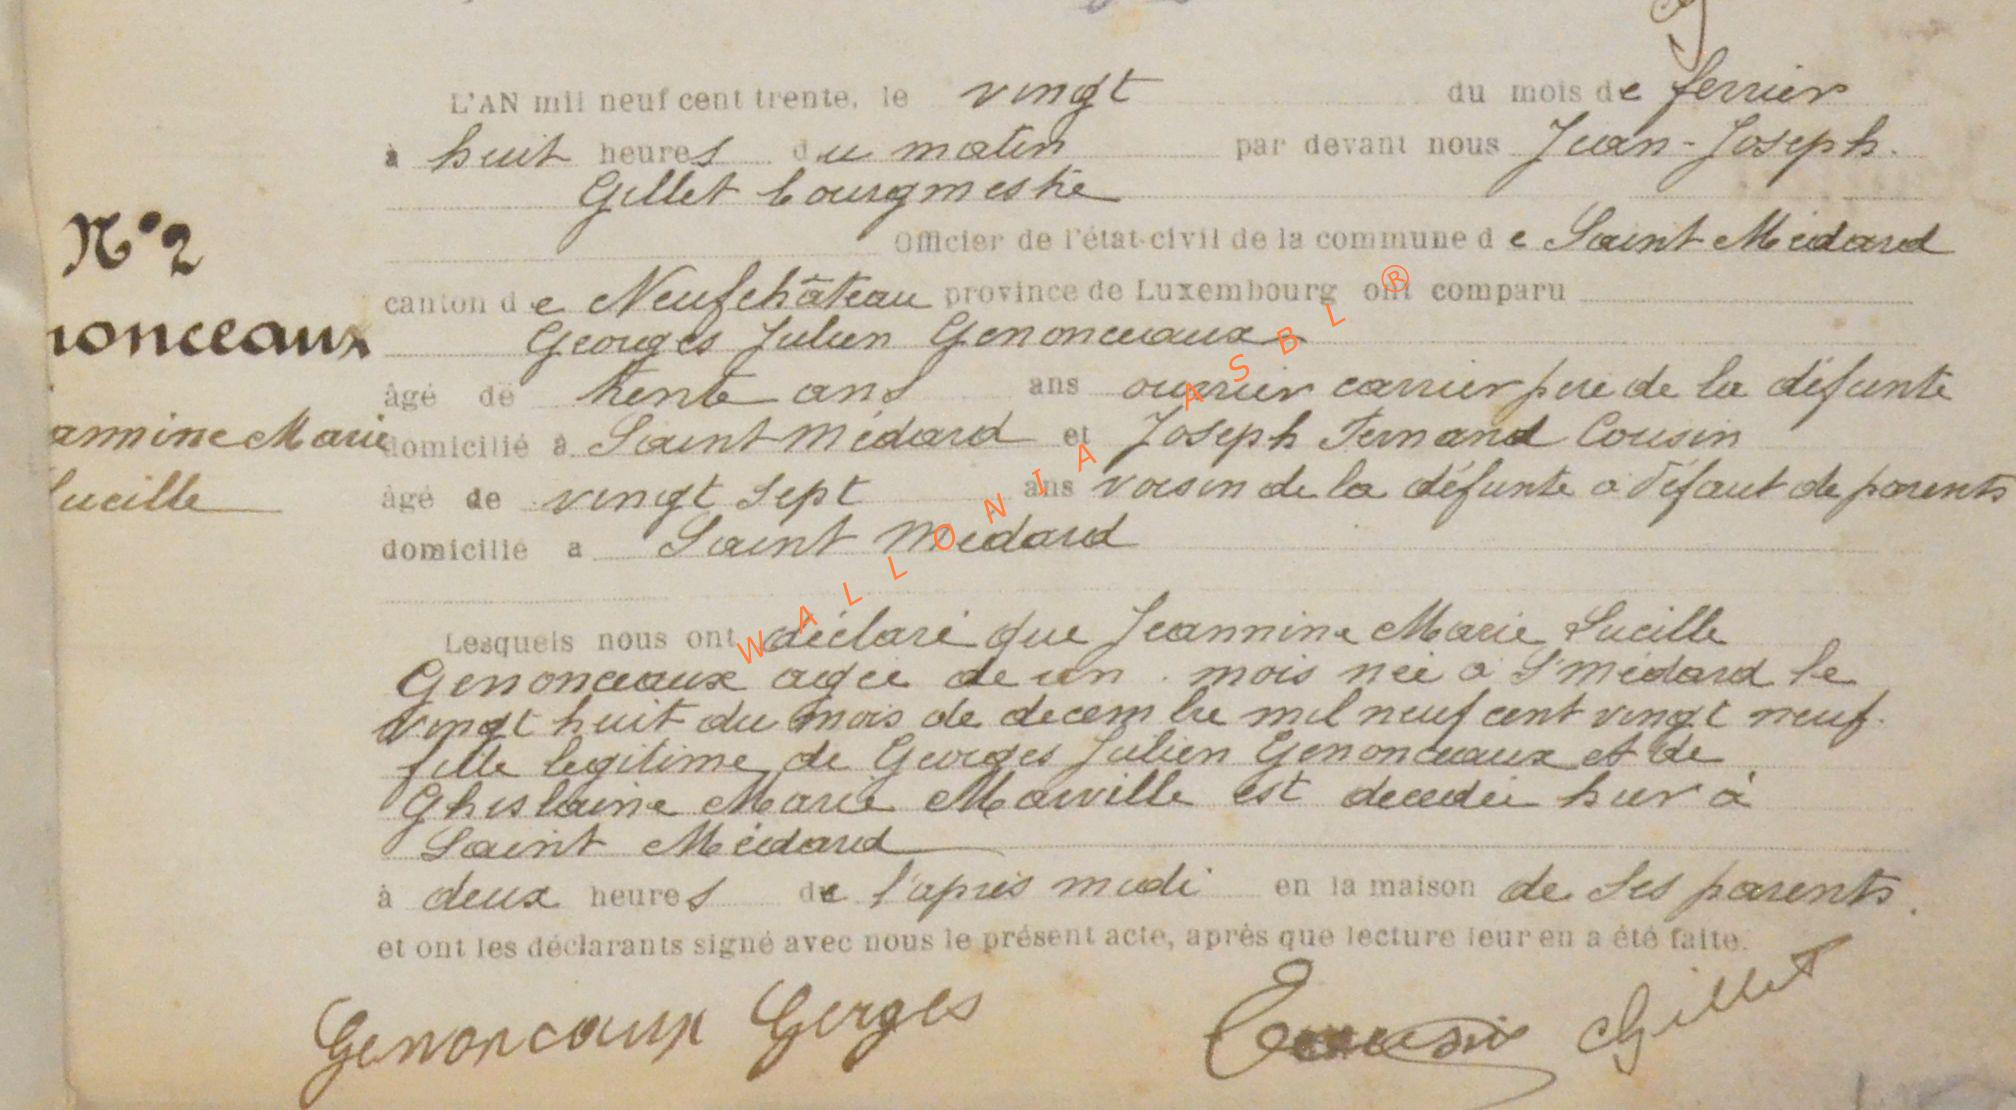 L'AN mil neuf cent trente, le vingt du mois de fevrier
à huit heures du matin par devant nous Jean-Joseph.
Gillet bourgmestre
Officier de l'état-civil de la commune de Saint Médard
canton de Neufchâteau province de Luxembourg ont comparu
Georges Julien Genonceaux
âgé de trente ans ans ouvrier carrier père de la défunte
domicilié à Saint-Médard et Joseph Fernand Cousin
âgé de vingt sept ans voisin de la défunte à défaut de parents
domicilié à Saint Médard
Lesquels nous ont déclaré que Jeannine Marie Lucille
Genonceaux agée de un mois née à St Médard le
vingt huit du mois de decembre mil neuf cent vingt neuf.
fille légitime de Georges Julien Genonceaux et de
Ghislaine Marie Marville est decedée hier à
Saint Médard
à deux heures de l'après midi en la maison de ses parents.
et ont les déclarants signé avec nous le présent acte, après que lecture leur en a été faite.
Genoncaux Gerges Cousin Gillet
N°2
nonceaux
annine Marie
Lucille
WALLONIA ASBL ®